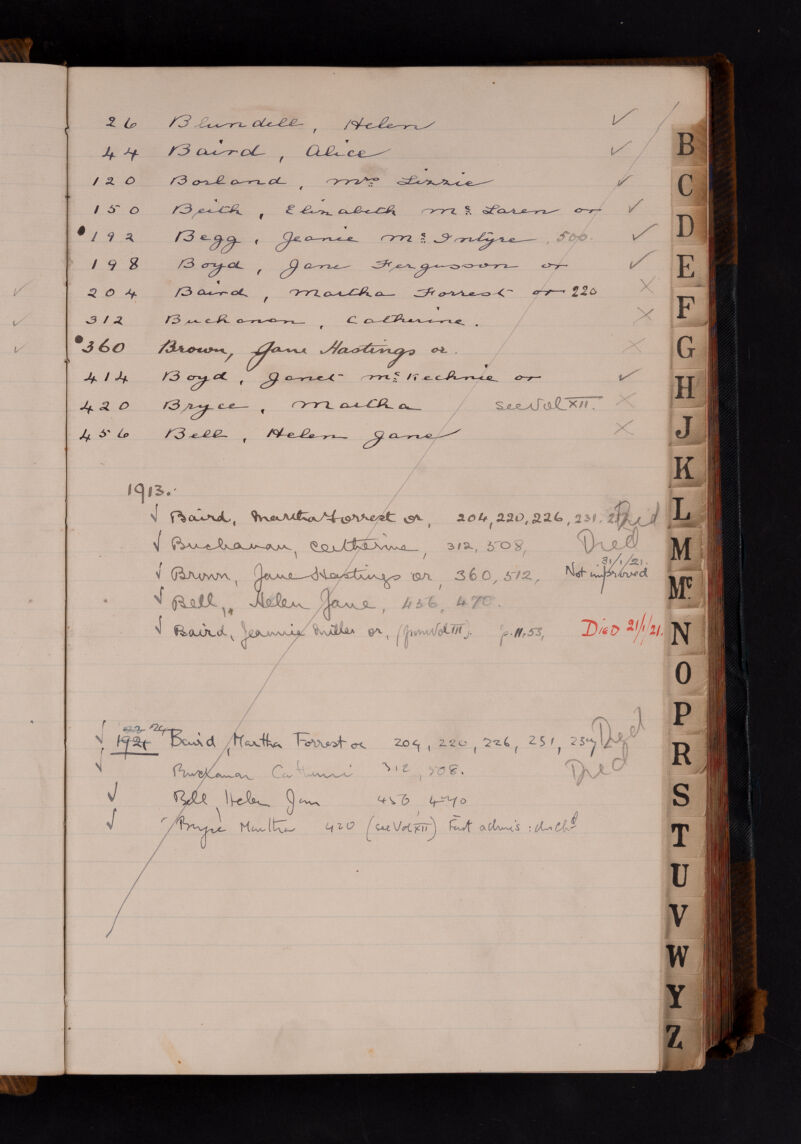 26 Blundell, Helen ✓
44 Baird, Alice ✓
120 Borland, Mrs Lizzie ✓
150 Beith, Elizabeth Mc Laren or ✓
192 Begg, Jeanie Mc Intyre 500. ✓
198 Boyd, Jane Fergusson or ✓
204 Baird, Martha Forrest or 220 ×
312 Buchanan, Catherine. ×
360 Brown, Jane Hastings or. ×
414 Boyd, Janet Mc Kechnie or ✓
420 Bryce, Martha See Vol XII. ×
456 Bell, Helen Jane ×
1913.
✓ Baird, Martha Forrest or, 204, 220, 226, 231. Died
✓ Buchanan, Catherine, 312, 508, Died
31/1/21.
✓ Brown, Jane Hastings or, 360, 512, Not improved
✓ Bell, Helen Jane, 456, 470.
✓ Baird, Jeannie Miller or, (from Vol III). p. 11, 53, Died 21/1/21.
22 24
✓ 1921 Baird, Martha Forrest or 204, 220, 226, 231, Died
✓ Buchanan Catherine 312, 508. Died
✓ Bell, Helen Jane 456, 470
✓ Bryce Martha 420 (see Vol XII)
B
C
D
E
F
G
H
J
K
L
M
Mc
N
O
P
R
S
T
U
V
W
Y
Z